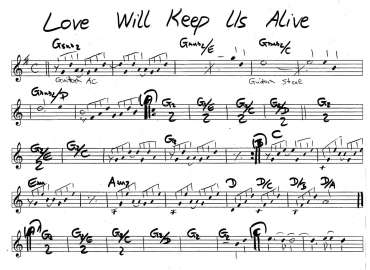 Love Will Keep Us Alive
Gsus2 Gsus2/E Gsus2/C
Guitar AC Guitar Steel
Gsus2/D G2 G2/E G2/C G2/D G2
2 2 2 2
G2/E G2/C G2 C
2 2 2
Em7 Am7 D D/C D/B D/A
G2 G2/E G2/C G2/D G2 G2